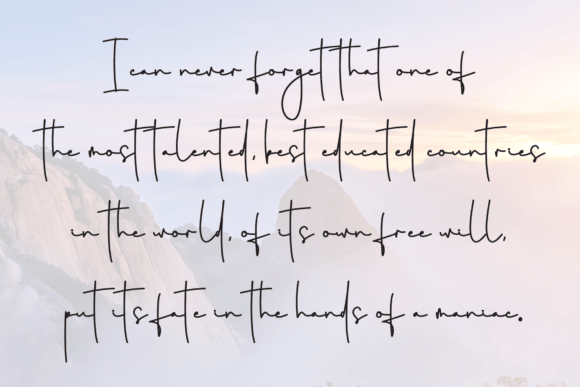 I can never forget that one of
the most talented, best educated countries
in the world, of its own free will,
put its fate in the hands of a maniac.